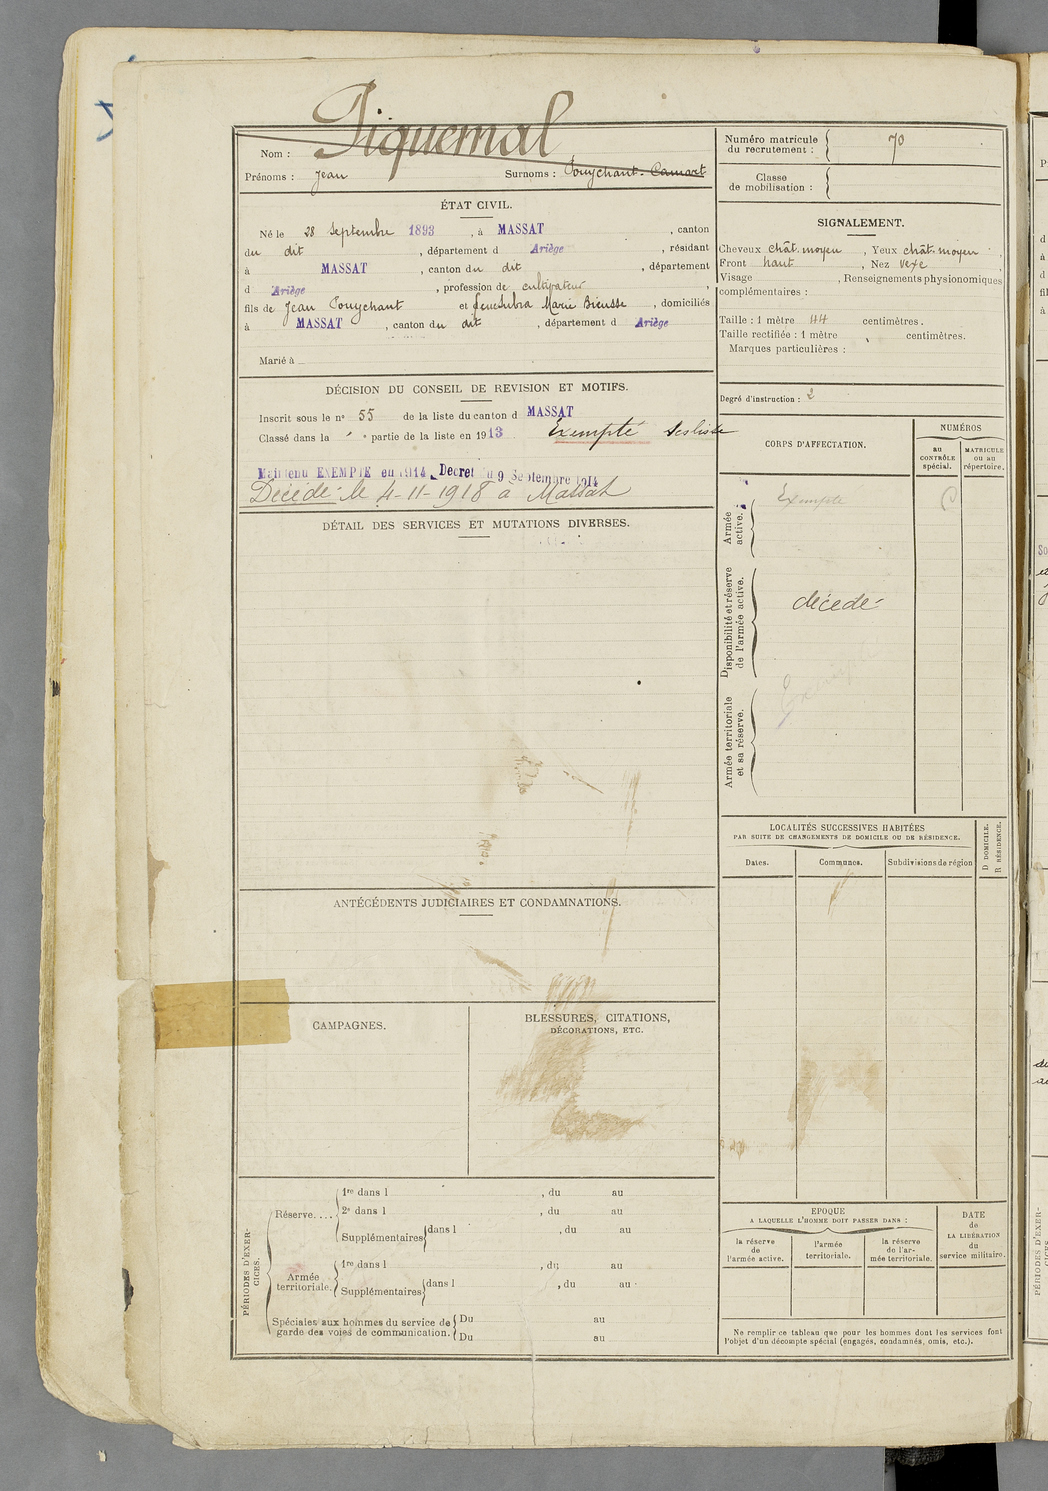 Piquemal
Nom :
Prénoms : Jean Surnoms : Pouychant. Camart
ÉTAT CIVIL.
Né le 28 Septembre 1893, à MASSAT, canton
du dit, département d Ariège, résidant
à MASSAT, canton du dit, département
d Ariège, profession de cultivateur,
fils de Jean Pouychant et Marie, domiciliés
à MASSAT, canton du dit, département d Ariège
Marié à
DÉCISION DU CONSEIL DE REVISION ET MOTIFS.
Inscrit sous le nº 55 de la liste du canton d MASSAT
Classé dans la partie de la liste en 1913 Exempté
Maintenu EXEMPTE en 1914 Decret du 9 Septembre 1914
Décédé le 4-11-1918 à Massat
DÉTAIL DES SERVICES ET MUTATIONS DIVERSES.
ANTÉCÉDENTS JUDICIAIRES ET CONDAMNATIONS.
CAMPAGNES.
BLESSURES, CITATIONS,
DÉCORATIONS, ETC.
PÉRIODES D'EXER-
CICES.
Réserve....
1re dans l , du au
2e dans l , du au
Supplémentaires dans l , du au
Armée
territoriale.
1re dans l , du au
Supplémentaires dans l , du au
Spéciales aux hommes du service de
garde des voies de communication.
Du au
Du au
Numéro matricule
du recrutement : 70
Classe
de mobilisation :
SIGNALEMENT.
Cheveux chât. moyen, Yeux chât. moyen,
Front haut, Nez vexe
Visage , Renseignements physionomiques
complémentaires :
Taille : 1 mètre 44 centimètres.
Taille rectifiée : 1 mètre centimètres.
Marques particulières :
Degré d'instruction : 2
CORPS D'AFFECTATION.
NUMÉROS
au
CONTRÔLE
spécial.
MATRICULE
ou au
répertoire.
Armée
active.
Exempté
Disponibilité et réserve
de l'armée active.
décédé
Armée territoriale
et sa réserve.
LOCALITÉS SUCCESSIVES HABITÉES
PAR SUITE DE CHANGEMENTS DE DOMICILE OU DE RÉSIDENCE.
D DOMICILE.
R RÉSIDENCE.
Dates. Communes. Subdivisions de région
EPOQUE
A LAQUELLE L'HOMME DOIT PASSER DANS :
la réserve
de
l'armée active.
l'armée
territoriale.
la réserve
de l'ar-
mée territoriale.
DATE
de
LA LIBÉRATION
du
service militaire.
Ne remplir ce tableau que pour les hommes dont les services font
l'objet d'un décompte spécial (engagés, condamnés, omis, etc.).